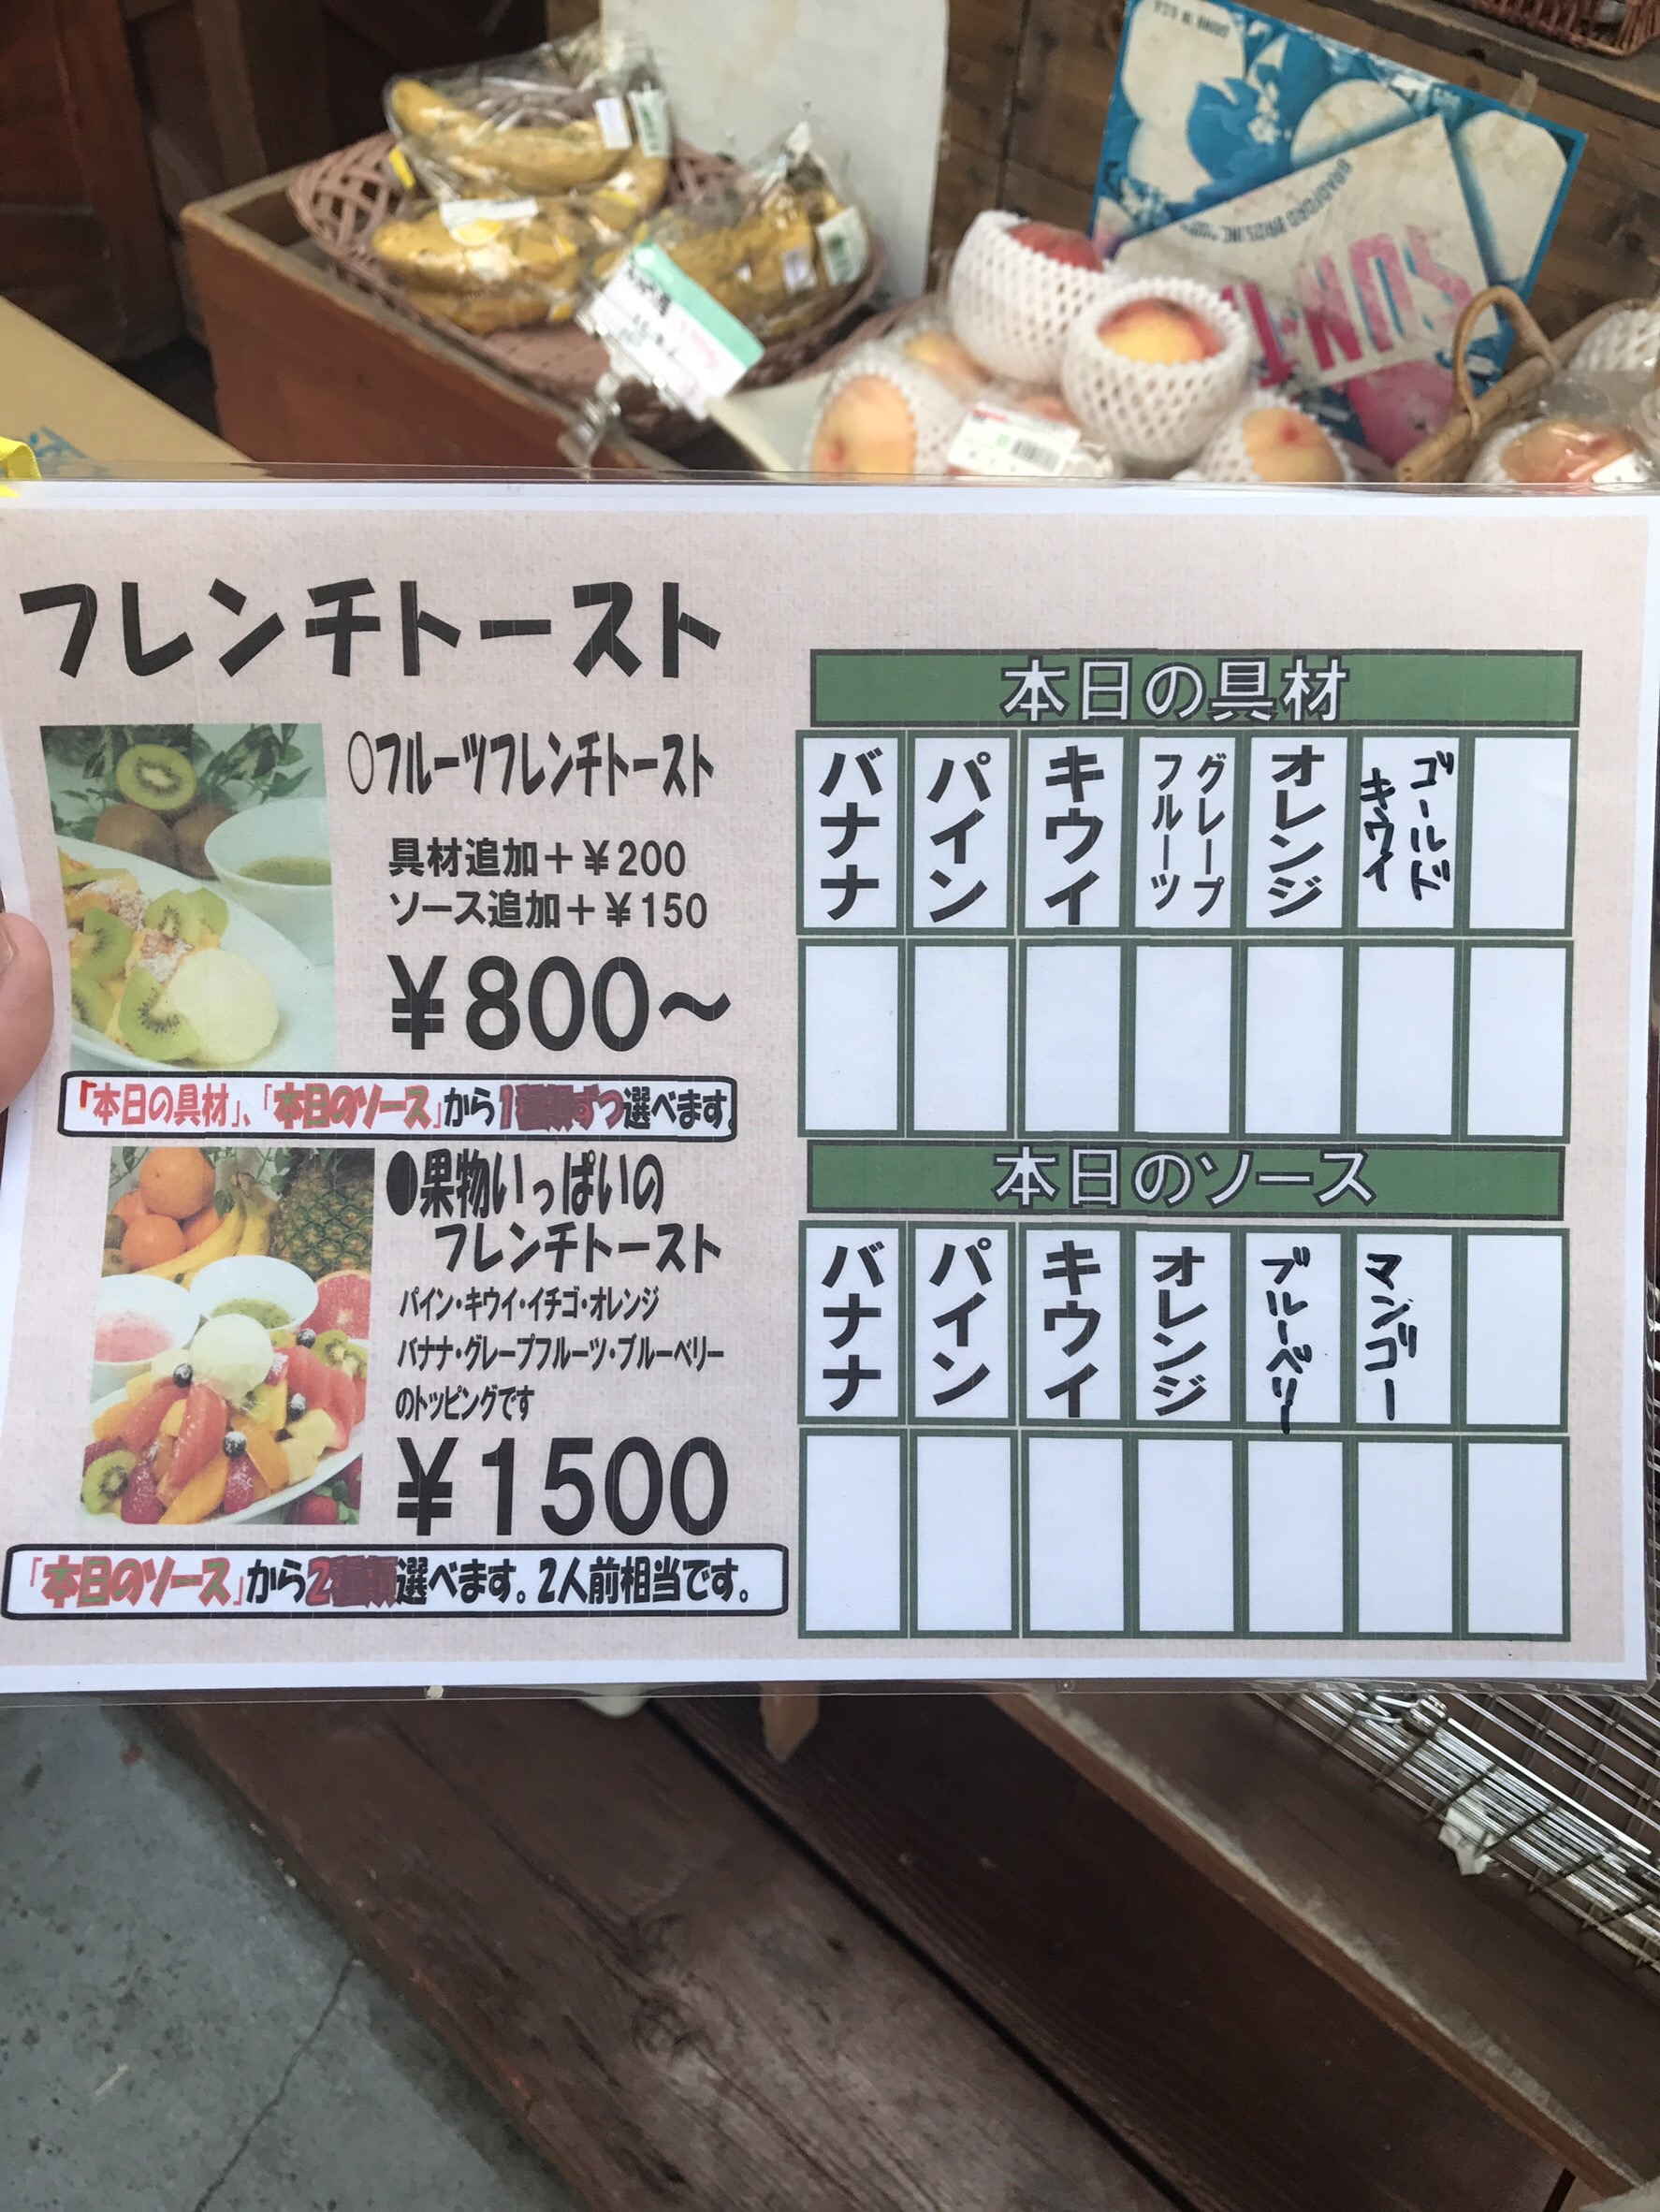 フレンチトースト
○フルーツフレンチトースト
具材追加＋¥200
ソース追加＋¥150
¥800～
「本日の具材」、「本日のソース」から1種類ずつ選べます。
●果物いっぱいの
フレンチトースト
パイン・キウイ・イチゴ・オレンジ
バナナ・グレープフルーツ・ブルーベリー
のトッピングです
¥1500
「本日のソース」から2種類選べます。2人前相当です。
本日の具材
バナナ
パイン
キウイ
グレープ
フルーツ
オレンジ
ゴールド
キウイ
本日のソース
バナナ
パイン
キウイ
オレンジ
ブルーベリー
マンゴー